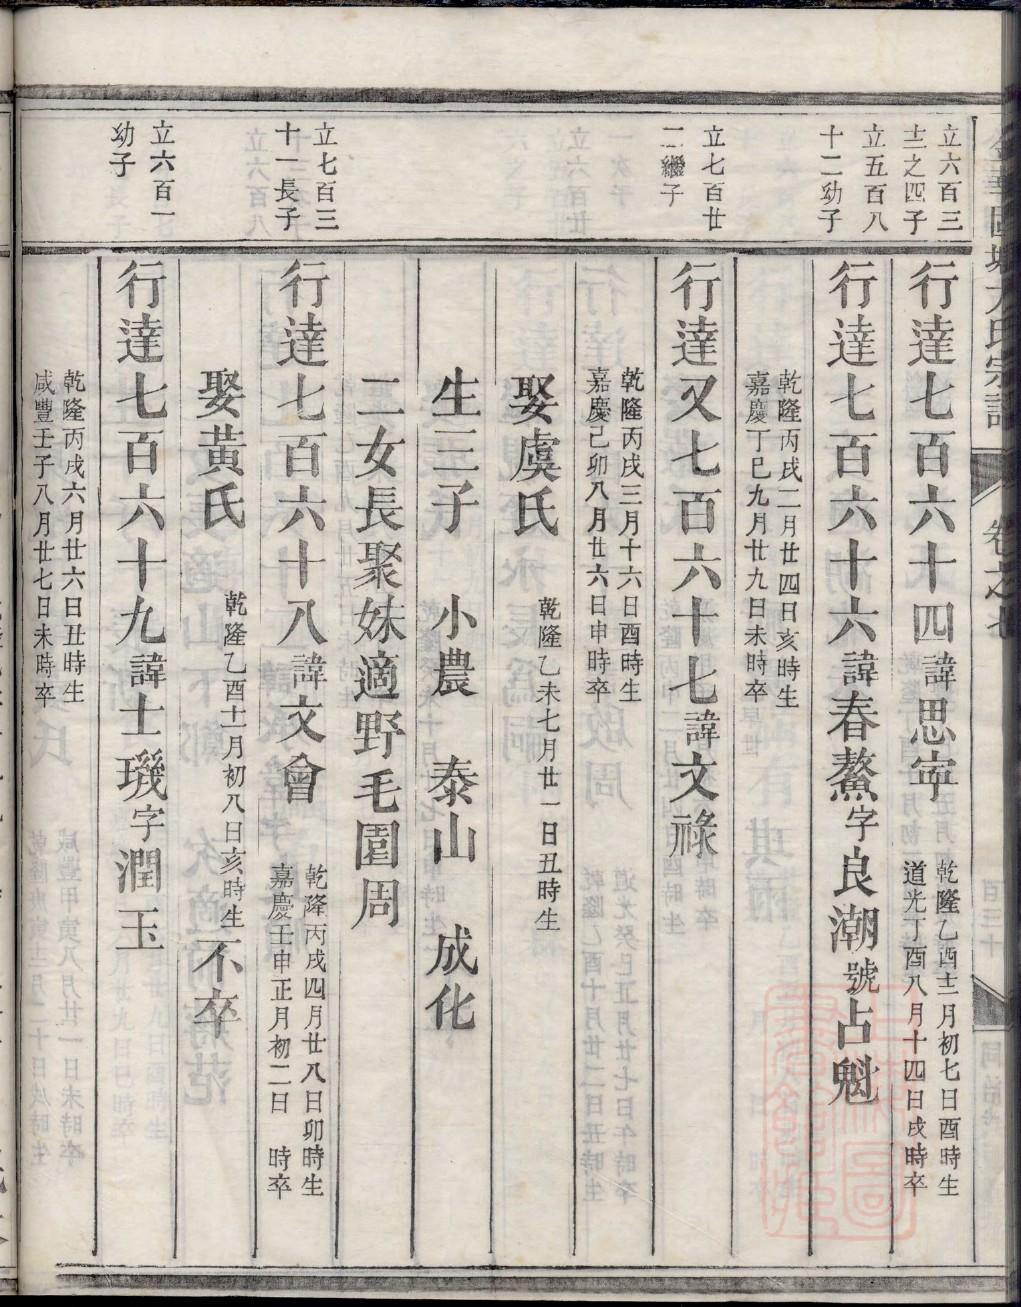 立六百三
十二之四子
行達七百六十四諱思寍
乾隆乙酉十二月初七日酉時生
道光丁酉八月十四日戌時卒
立五百八
十二幼子
行達七百六十六諱春鰲字良潮號占魁
乾隆丙戌二月廿四日亥時生
嘉慶丁巳九月廿九日未時卒
立七百廿
二繼子
行達又七百六十七諱文祿
乾隆丙戌三月十六日酉時生
嘉慶己卯八月廿六日申時卒
娶虞氏
乾隆乙未七月廿一日丑時生
生三子 小農 泰山 成化
二女長聚妹適野毛園周
立七百三
十一長子
行達七百六十八諱文會
乾隆丙戌四月廿八日卯時生
嘉慶壬申正月初二日 時卒
娶黃氏
乾隆乙酉十一月初八日亥時生
不卒
立六百一
幼子
行達七百六十九諱士璣字潤玉
乾隆丙戌六月廿六日丑時生
咸豐壬子八月廿七日未時卒